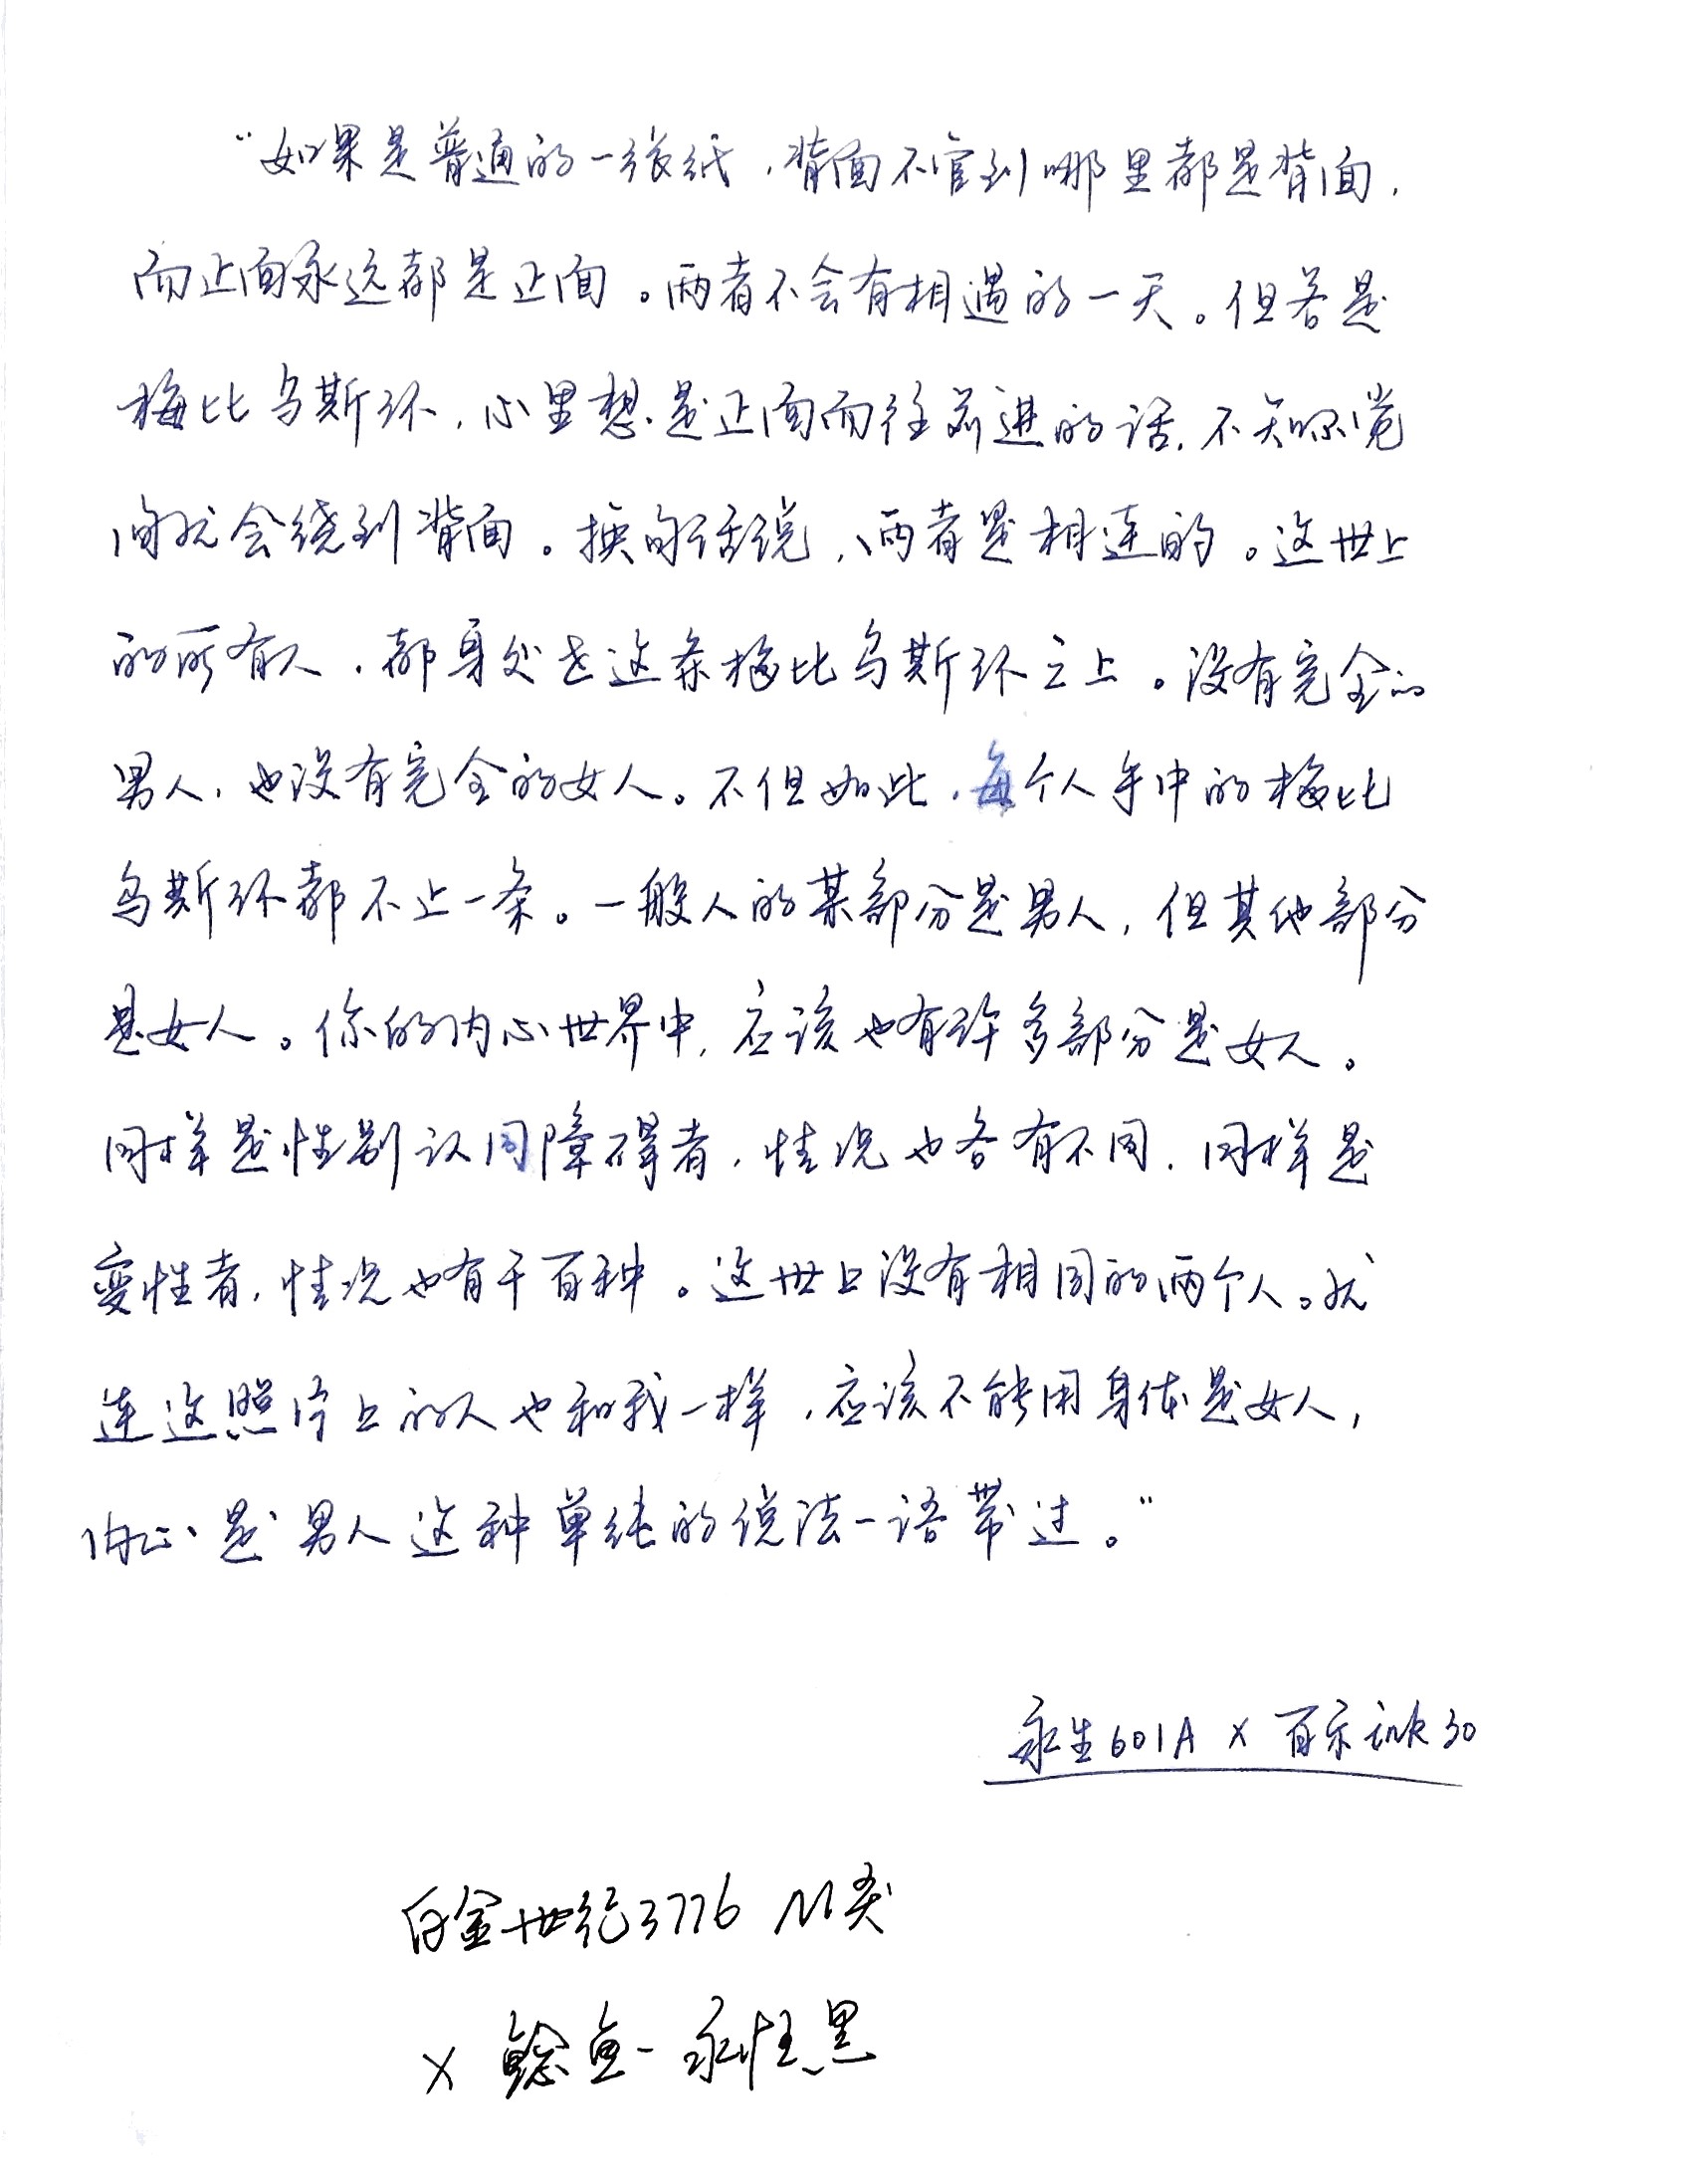 “如果是普通的一张纸，背面不管到哪里都是背面，
而正面永远都是正面。两者不会有相遇的一天。但若是
梅比乌斯环，心里想是正面而往前进的话，不知不觉
间就会绕到背面。换句话说，两者是相连的。这世上
的所有人，都身处在这条梅比乌斯环之上。没有完全的
男人，也没有完全的女人。不但如此，每个人手中的梅比
乌斯环都不止一条。一般人的某部分是男人，但其他部分
是女人。你的内心世界中，应该也有许多部分是女人。
同样是性别认同障碍者，情况也各有不同，同样是
变性者，情况也有千百种。这世上没有相同的两个人。就
连这照片上的人也和我一样，应该不能用身体是女人，
内心是男人这种单纯的说法一语带过。”
永生601A X 百乐ink30
白金世纪3776 M尖
X 鲶鱼-永恒黑